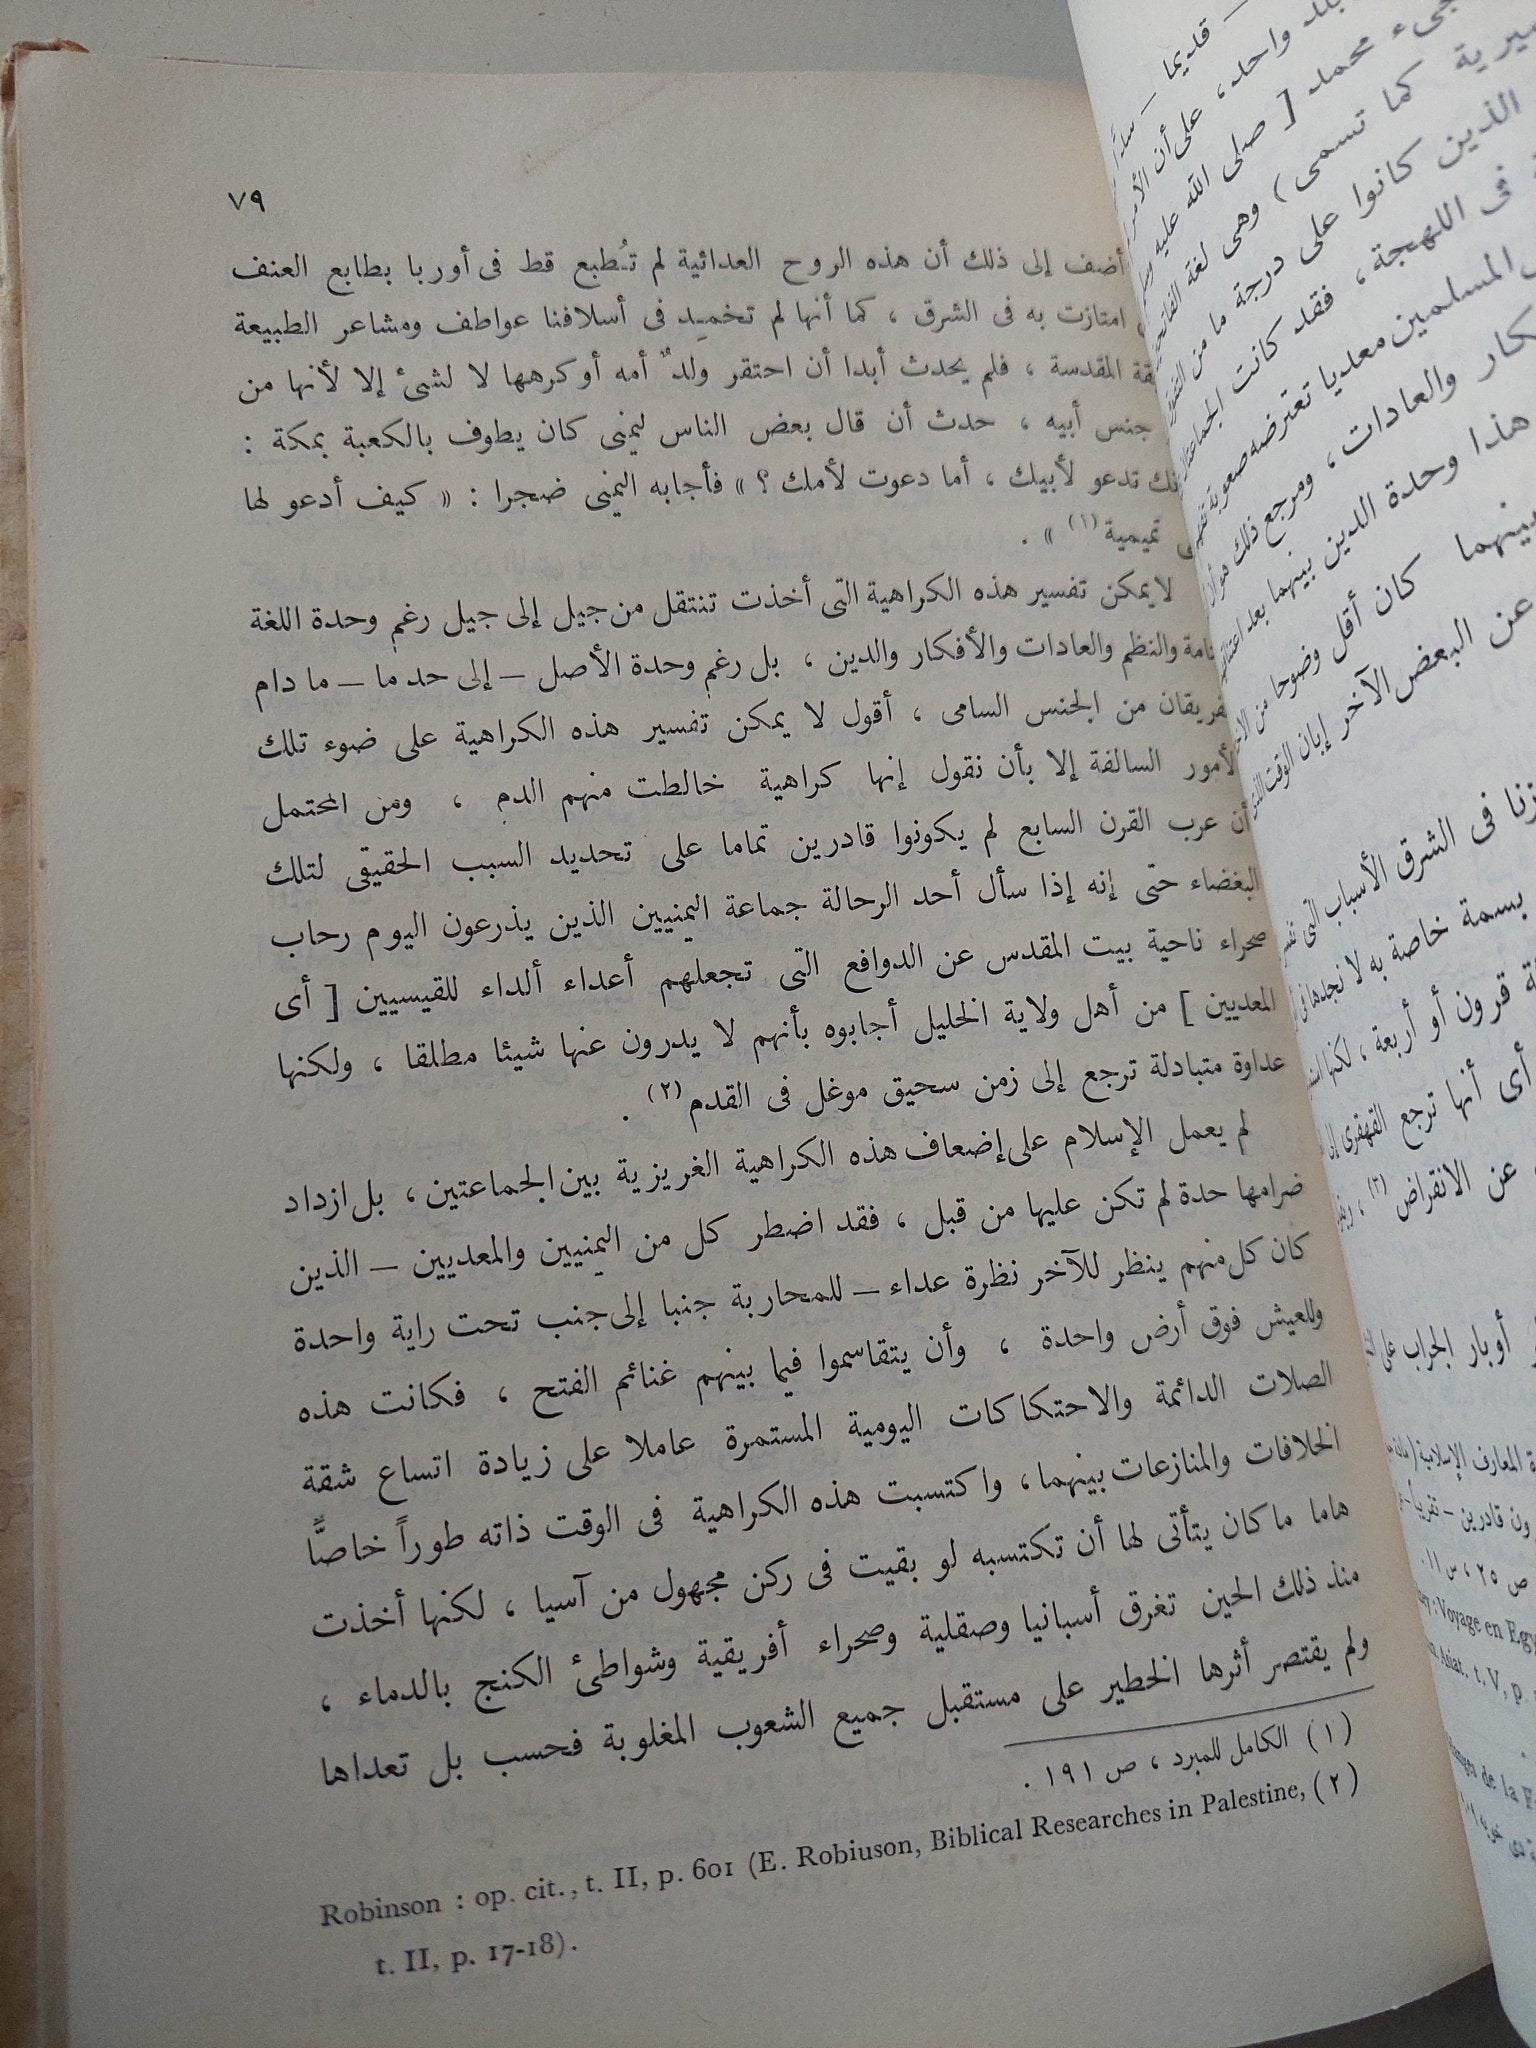 ٧٩
أضف إلى ذلك أن هذه الروح العدائية لم تُطبع قط فى أوربا بطابع العنف
امتازت به فى الشرق ، كما أنها لم تخمد فى أسلافنا عواطف ومشاعر الطبيعة
المقدسة ، فلم يحدث أبدا أن احتقر ولدٌ أمه أو كرهها لا لشئ إلا لأنها من
جنس أبيه ، حدث أن قال بعض الناس ليمنى كان يطوف بالكعبة بمكة :
تدعو لأبيك ، أما دعوت لأمك ؟ » فأجابه اليمنى ضجرا : « كيف أدعو لها
تميمية (١) » .
لا يمكن تفسير هذه الكراهية التى أخذت تنتقل من جيل إلى جيل رغم وحدة اللغة
والنظم والعادات والأفكار والدين ، بل رغم وحدة الأصل – إلى حد ما – ما دام
من الجنس السامى ، أقول لا يمكن تفسير هذه الكراهية على ضوء تلك
الأمور السالفة إلا بأن نقول إنها كراهية خالطت منهم الدم ، ومن المحتمل
أن عرب القرن السابع لم يكونوا قادرين تماما على تحديد السبب الحقيقى لتلك
البغضاء حتى إنه إذا سأل أحد الرحالة جماعة اليمنيين الذين يذرعون اليوم رحاب
صحراء ناحية بيت المقدس عن الدوافع التى تجعلهم أعداء ألداء للقيسيين [ أى
المعديين ] من أهل ولاية الخليل أجابوه بأنهم لا يدرون عنها شيئا مطلقا ، ولكنها
عداوة متبادلة ترجع إلى زمن سحيق موغل فى القدم (٢) .
لم يعمل الإسلام على إضعاف هذه الكراهية الغريزية بين الجماعتين ، بل ازداد
ضرامها حدة لم تكن عليها من قبل ، فقد اضطر كل من اليمنيين والمعديين – الذين
كان كل منهم ينظر للآخر نظرة عداء – للمحاربة جنبا إلى جنب تحت راية واحدة
وللعيش فوق أرض واحدة ، وأن يتقاسموا فيما بينهم غنائم الفتح ، فكانت هذه
الصلات الدائمة والاحتكاكات اليومية المستمرة عاملا على زيادة اتساع شقة
الخلافات والمنازعات بينهما ، واكتسبت هذه الكراهية فى الوقت ذاته طوراً خاصًّا
هاما ما كان يتأتى لها أن تكتسبه لو بقيت فى ركن مجهول من آسيا ، لكنها أخذت
منذ ذلك الحين تغرق أسبانيا وصقلية وصحراء أفريقية وشواطئ الكنج بالدماء ،
ولم يقتصر أثرها الخطير على مستقبل جميع الشعوب المغلوبة فحسب بل تعداها
(١) الكامل للمبرد ، ص ١٩١ .
(٢) Robinson : op. cit., t. II, p. 601 (E. Robiuson, Biblical Researches in Palestine,
t. II, p. 17-18).
قديما –
واحد ، على أن
محمد [ صلى الله عليه
كما تسمى ) وهى لغة
الذين كانوا على درجة ما من
فى اللهجة ، فقد كانت
المسلمين معديا تعترضه صعوبة
والعادات ، ومرجع ذلك
هذا وحدة الدين بينهما بعد
بينهما كان أقل وضوحا من
عن البعض الآخر إبان الوقت
فى الشرق الأسباب التى
بسمة خاصة به لا نجدها فى
قرون أو أربعة ، لكنها
أى أنها ترجع القهقرى إلى
عن الانقراض (٣) ،
أوبار الجراب على
المعارف الإسلامية
قادرين – تقريباً –
ص ٢٥ ، س ١١ .
: Voyage en
Asiat. t. V, p.
de la